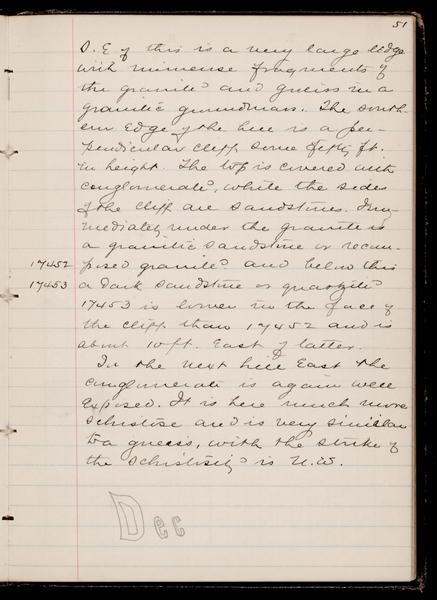 51
S. E of this is a very large ledge
with immense fragments of
the granite and gneiss in a
granitic groundmass. The south-
ern Edge of the hill is a per-
pendicular cliff some fifty ft.
in height. The top is covered with
conglomerate, while the sides
of the cliff are sandstones. Im-
mediately under the granite is
a granitic sandstone or recom-
17452 posed granite and below this
17453 a dark sandstone or quartzite
17453 is lower in the face of
the cliff than 17452 and is
about 10 ft. East of latter.
In the next hill East the
conglomerate is again well
Exposed. It is here much more
schistose and is very similar
to a gneiss, with the strike of
the schistosity is N.W.
Dec